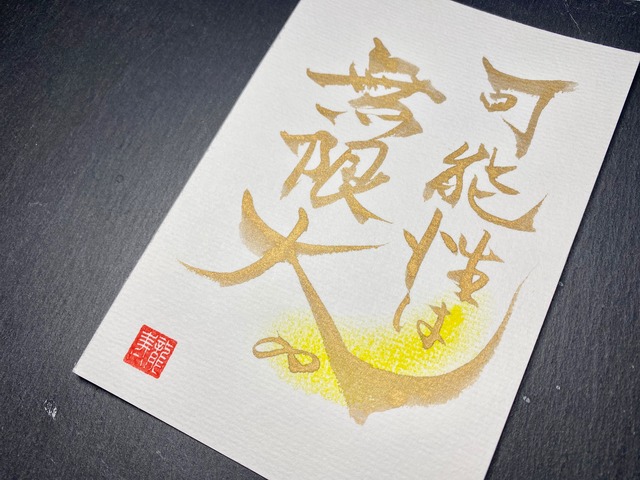 可能性は
無限大。